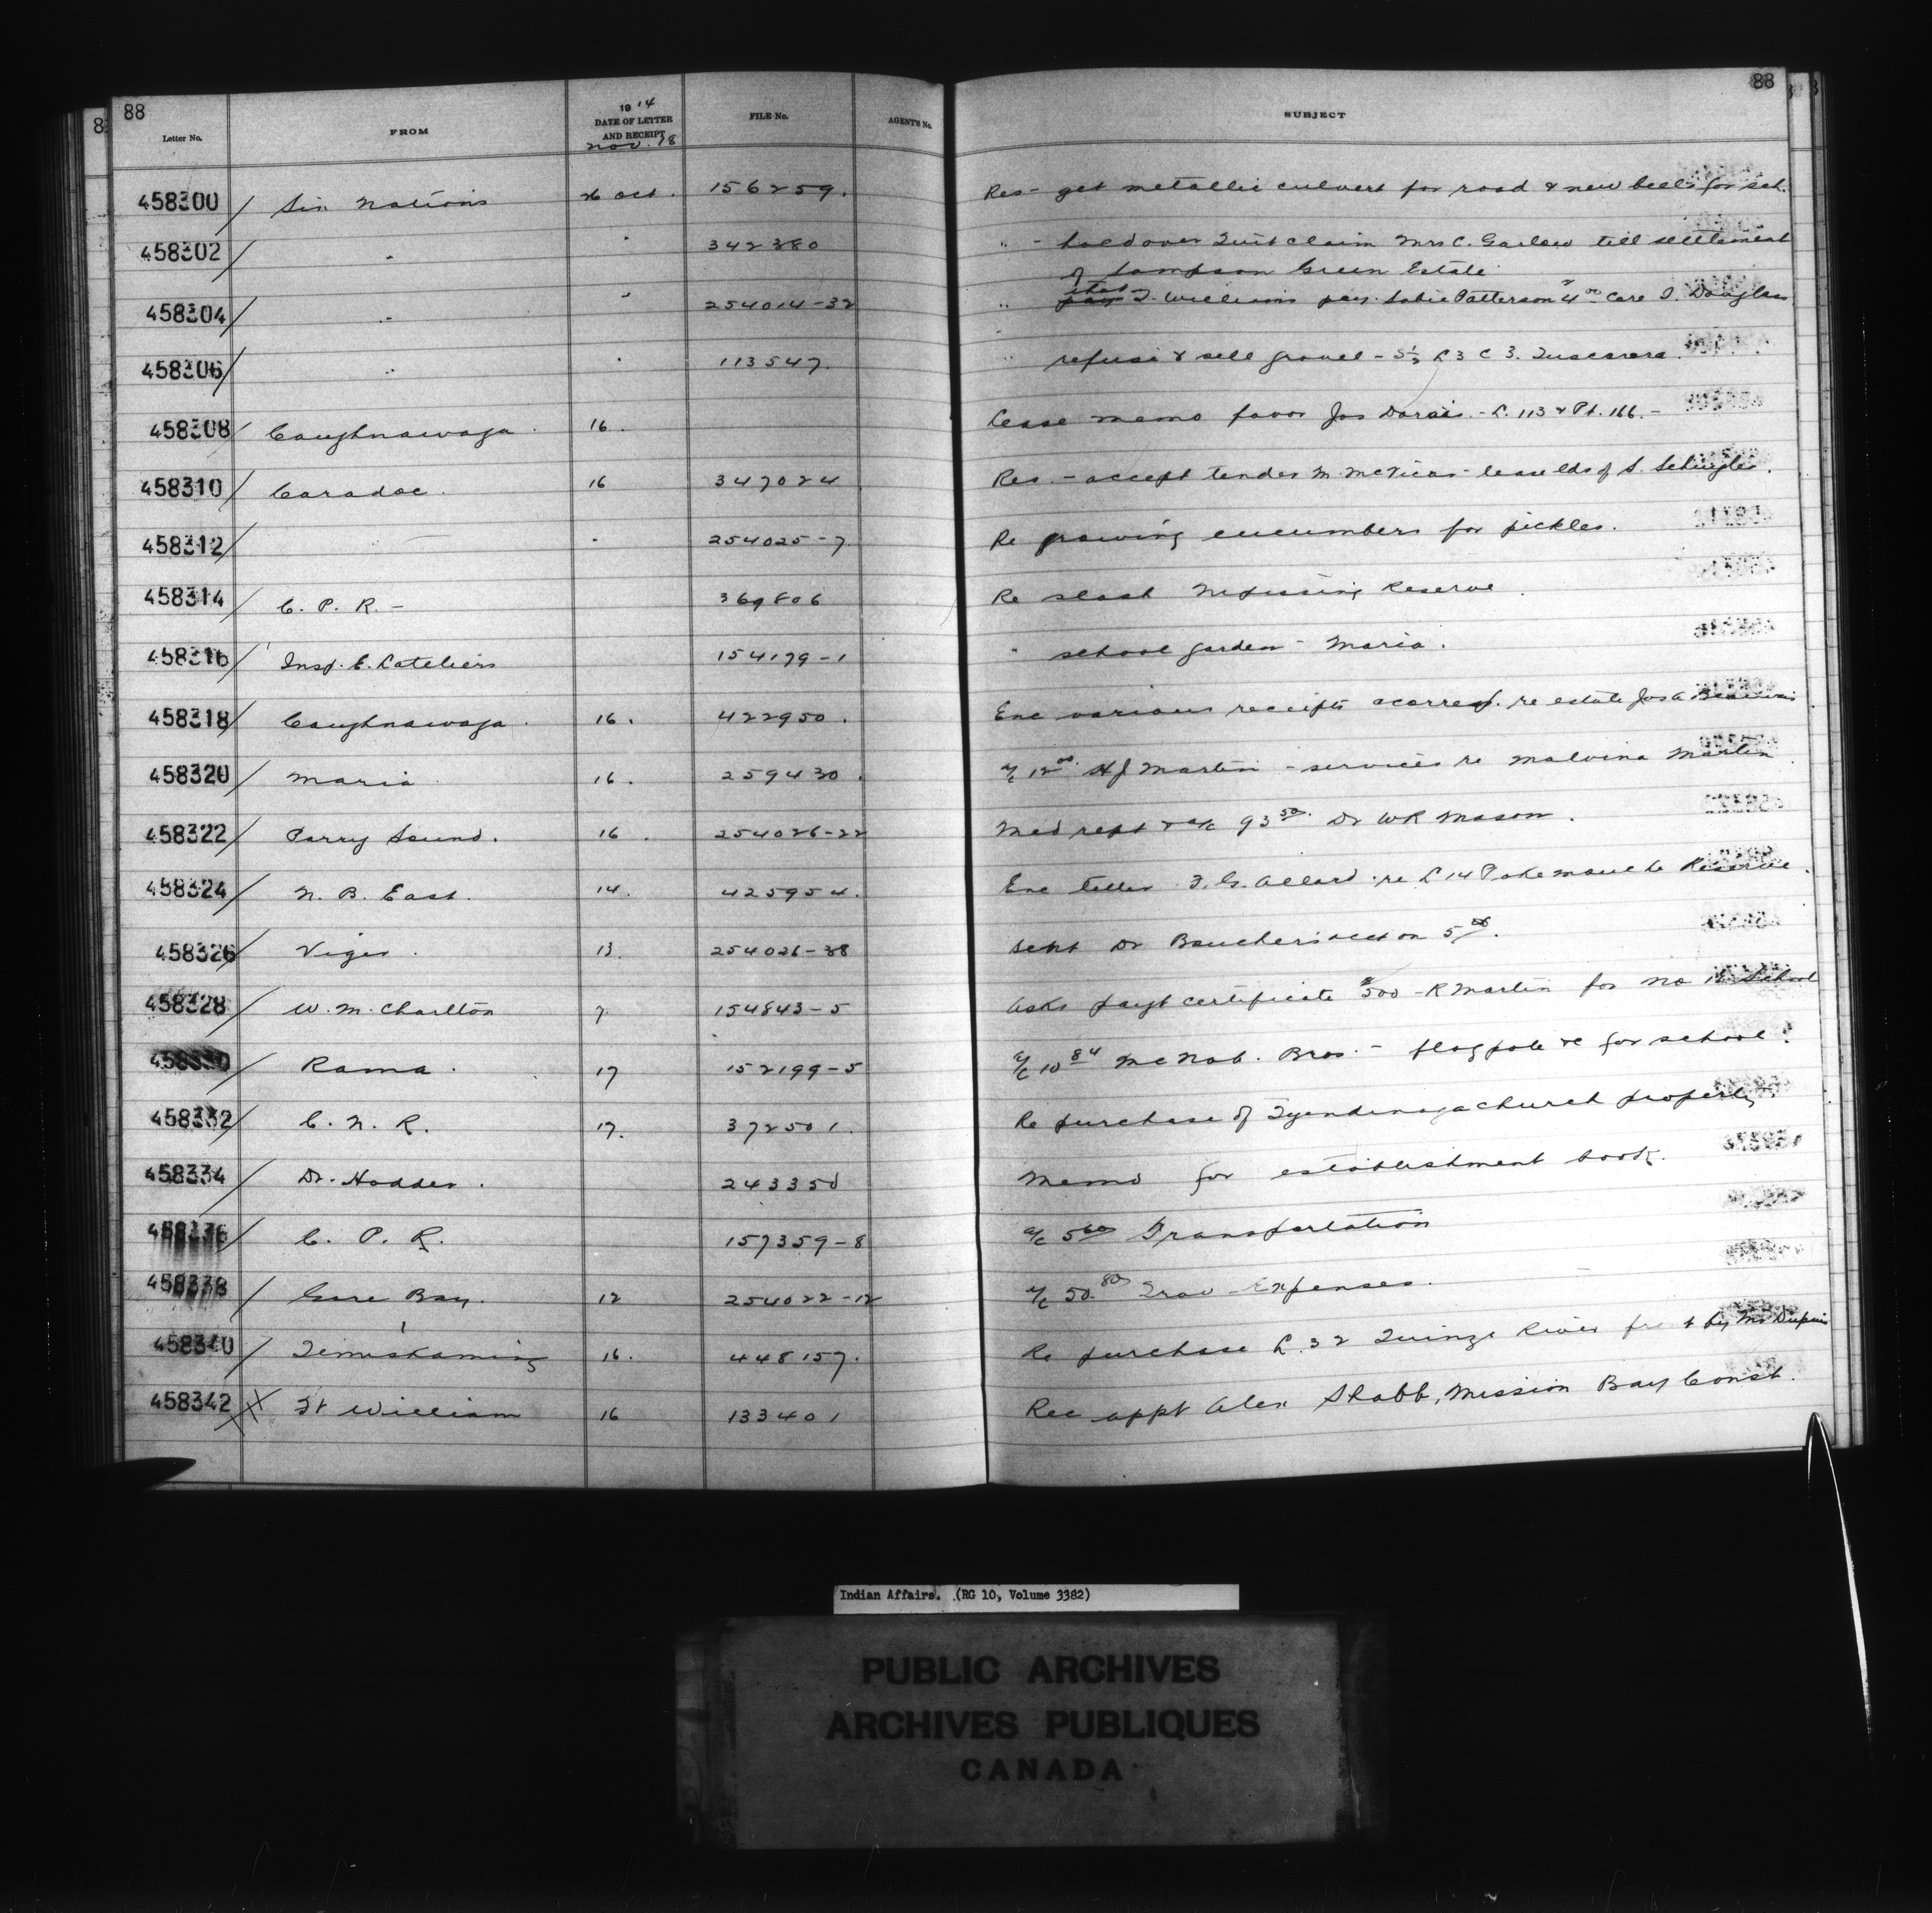 88 88
Letter No. FROM 1914 DATE OF LETTER AND RECEIPT Nov. 18 FILE No. AGENTS No. SUBJECT
458300 / Six Nations 26 Oct. 156259. Res - get metallic culvert for road & new bell for sch.
458302 / " " 342380 " - hold over Quit claim Mrs C. Garlow till settlement
of Sampson Green Estate
458304 / " " 254014-32 " that J. Williams pay Sabie Patterson $4.00 care I. Douglas
458306 / " " 113547. " refuse & sell gravel - S½ L 3 C 3. Tuscarora.
458308 / Caughnawaga. 16. Lease memo favor Jos Dorais. - L. 113 & Pt. 166. -
458310 / Caradoc. 16 347024 Res. - accept tender M. McVicar - lease lds of S. Schuyler.
458312 / " 254025-7 Re growing cucumbers for pickles.
458314 / C. P. R. - 369806 Re slash Nipissing Reserve.
458316 / Insp. E. Lateliers 154179-1 " school garden - Maria.
458318 / Caughnawaga. 16. 422950. Enc various receipts & corresp. re estate Jos A Beauvais
458320 / Maria 16. 259430. a/c 12.00 H J Martin - services re Malvina Martin
458322 / Parry Sound. 16. 254026-22 Med rept & a/c 93.50 Dr W R Mason.
458324 / N. B. East. 14. 425954. Enc letter F. G. Allard re L 14 Pokemouche Reserve.
458326 / Viger. 13. 254026-38 Sept Dr Boucher's acct on 5.00.
458328 / W. M. Charlton 7. 154843-5 Asks payt certificate $500 - R Martin for No School
458330 / Rama. 17 152199-5 a/c 10.84 McNab. Bros. - flag pole &c for school.
458332 / C. N. R. 17. 372501. Re purchase of Tyendinaga church property
458334 / Dr. Hodder. 243350 Memo for establishment book.
458336 / C. P. R. 157359-8 a/c 5.60 Transportation
458338 / Gore Bay. 12 254022-12 a/c 50.80 Trav Expenses.
458340 / Temiskaming 16. 448157. Re purchase L. 32 Quinze River by Mr Dupuis
458342 / Ft William 16 133401 Rec appt Alex Shabb, Mission Bay Const.
Indian Affairs. (RG 10, Volume 3382)
PUBLIC ARCHIVES
ARCHIVES PUBLIQUES
CANADA